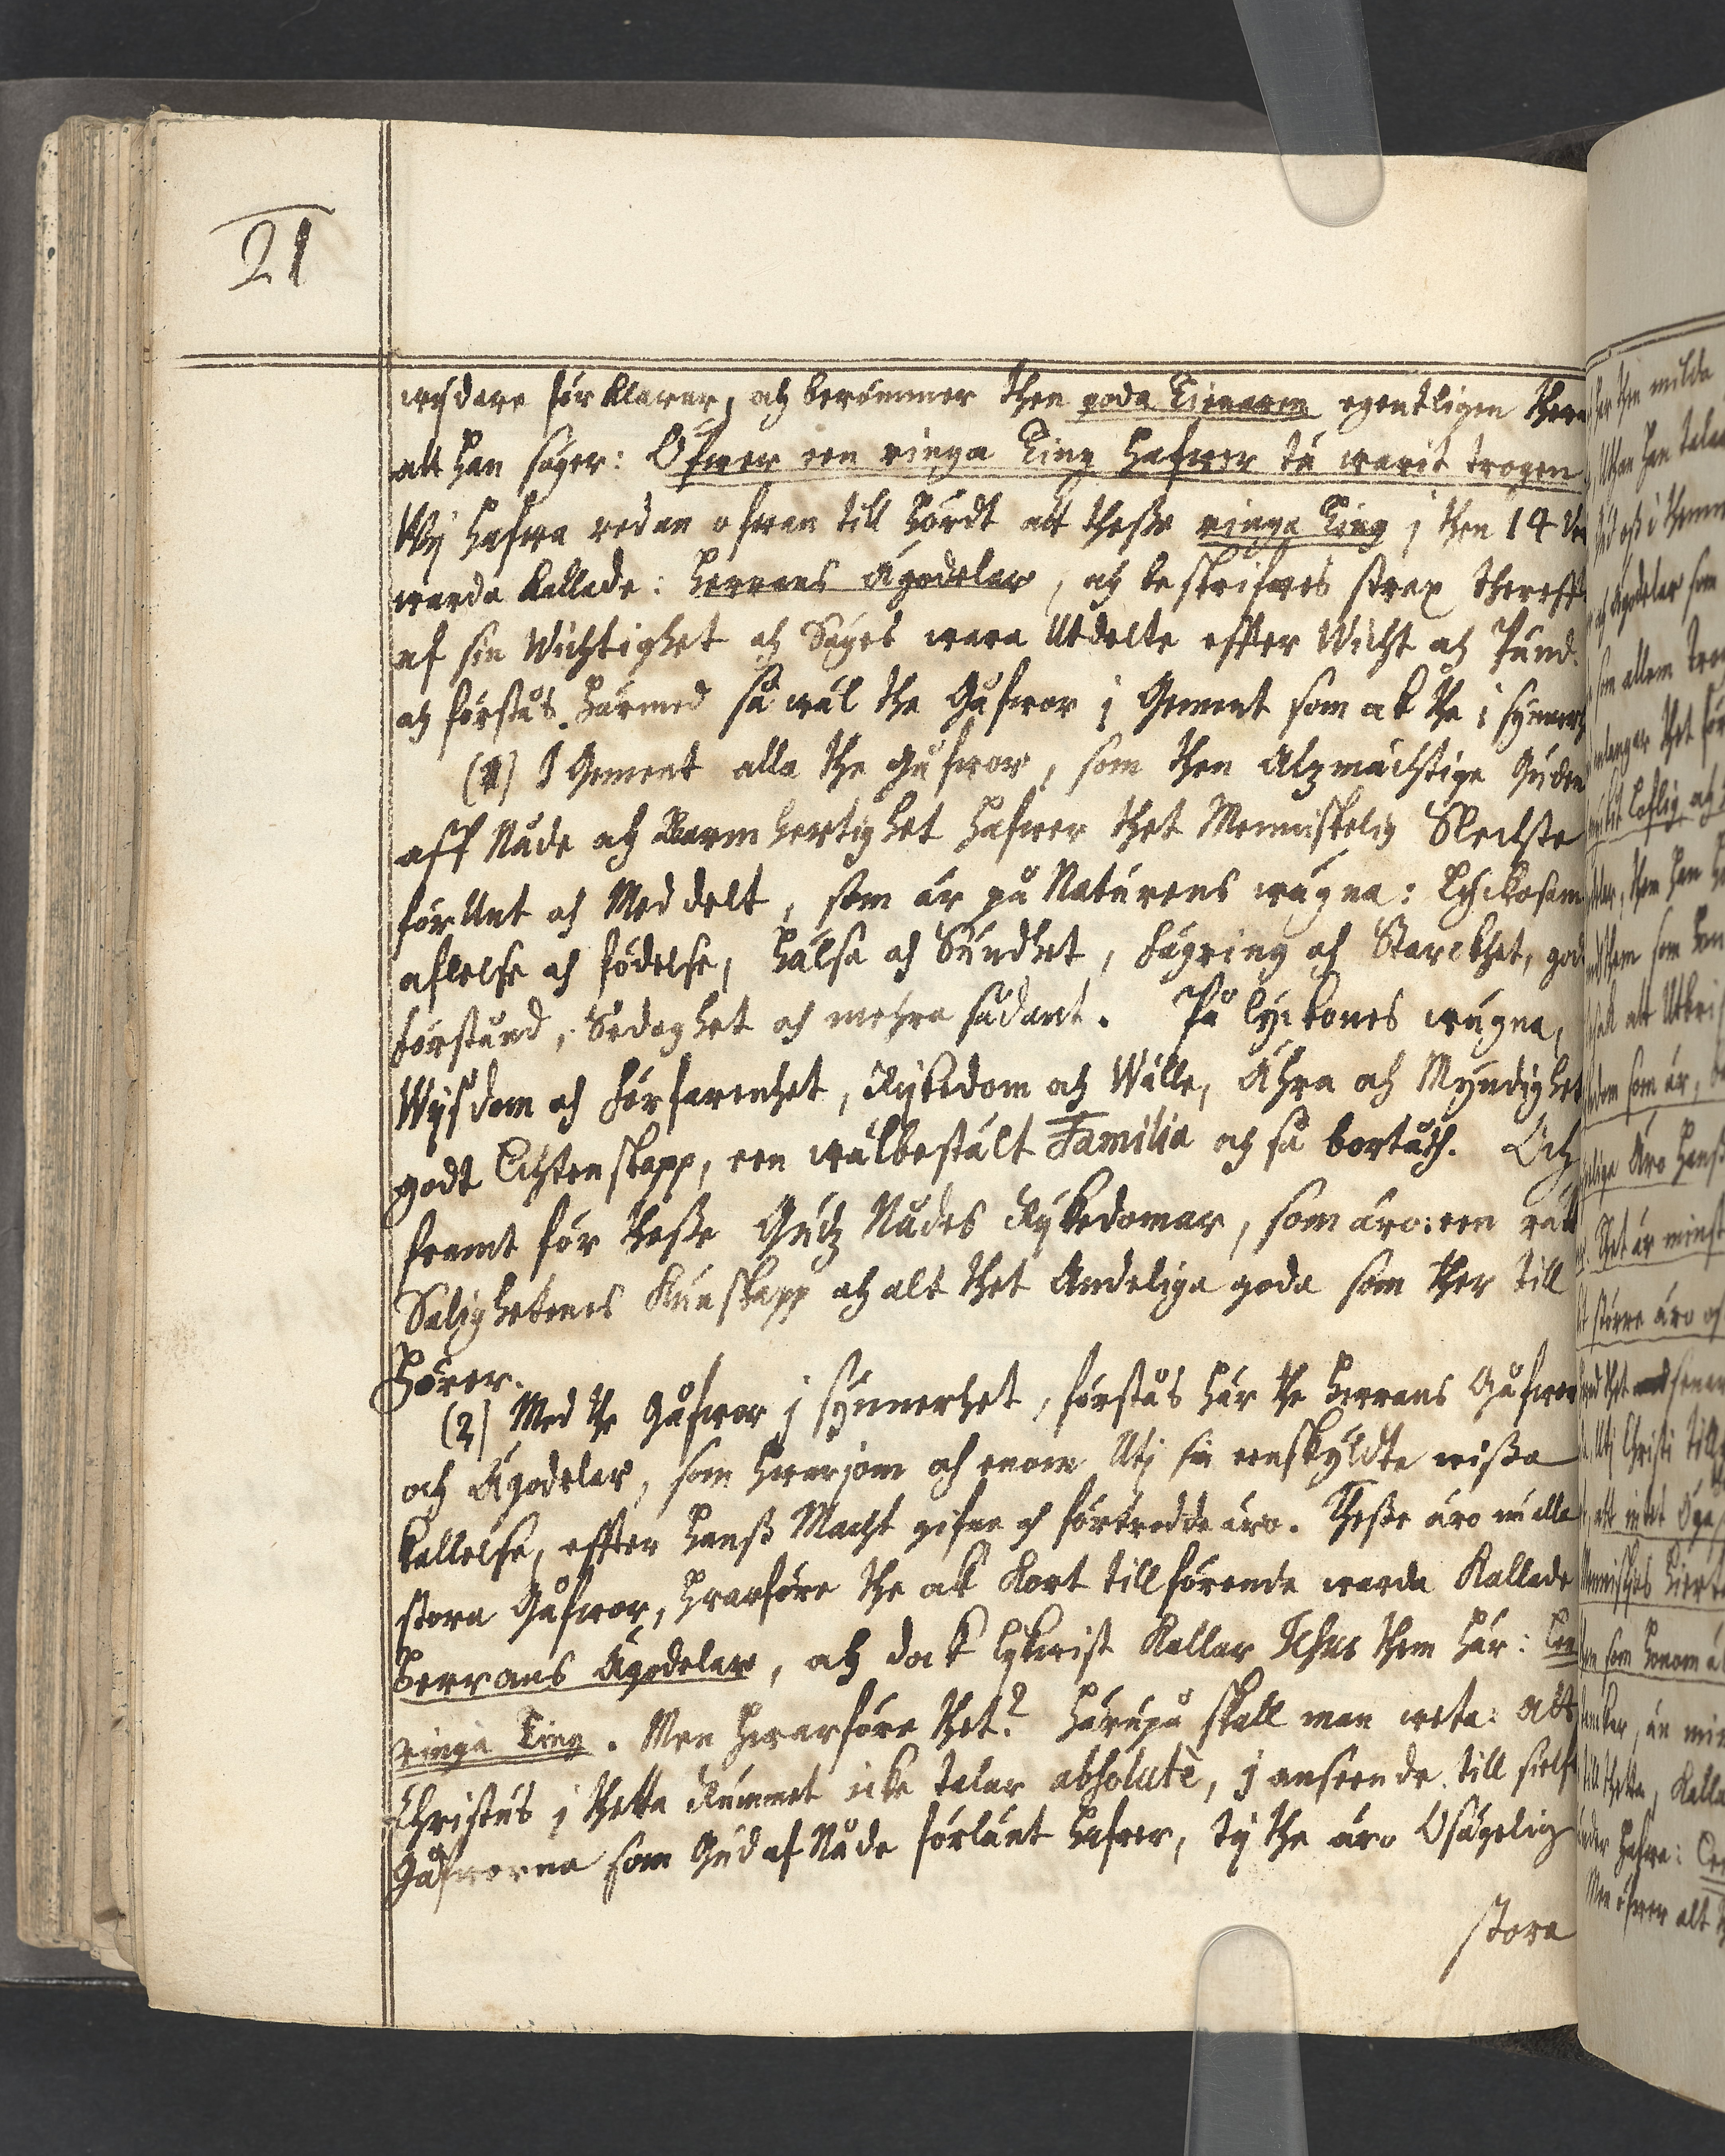 21
wijdare förklarar, och berömmer then goda Tienaren egentligen there
att han säger: Öfwer een ringa Ting hafwer tu warit trogen
Wij hafwa redan ofwan till hördt att thesse ringa Ting j then 14 Ve
warda kallade: Herrans Ägodelar, och beskrifwes strax thereft
af sin Wichtighet och Säges wara Utdelte effter Wicht och Pund.
och förstås härmed så wäl the Gåfwor j Gement som ok the i synnerh
(1) I Gement alla the gåfwor, som then Alzmächtige Guden
aff Nåde och Barmhertighet hafwer thet Menniskelig Slechte
förUnt och Meddelt, som är på Naturens wägna: Lyckosam
aflelse och födelse, hälsa och Sundhet, fägring och Starckhet, god
förstånd, Sedoghet och mehra sådant. På lyckones wägna,
Wijsdom och förfarenhet, Rijkedom och Wälle, Ähra och Myndighet
godt Echtenskapp, een wälbestält Familia och så bortåth. Och
framt för thesse Gudz Nådes Rijkedomar, som äro: een rätt
Salighetenes Kunskapp och alt thet Andeliga goda som ther till
hörer.
(2) Med the Gåfwor j synnerhet, förstås här the Herrans Gåfwor
och Ägodelar, som hwarjom och enom Utj sin enskyldte wissa
kallelse, effter hanss Macht gifne och förtrodde äro. Thesse äro nu alla
stora Gåfwor, hwarföre the ok kort tillförende warda kallade
Herrans Ägodelar, och dok lykwist kallar Jesus them här: Een
ringa Ting. Men hwarföre thet? Härupå skall man weta: Att
Christus j thetta Rummet icke talar absolutè, j anseende till sielf
Gåfworna som Gud af Nåde förlänt hafwer, ty the äro Osägelig
stora